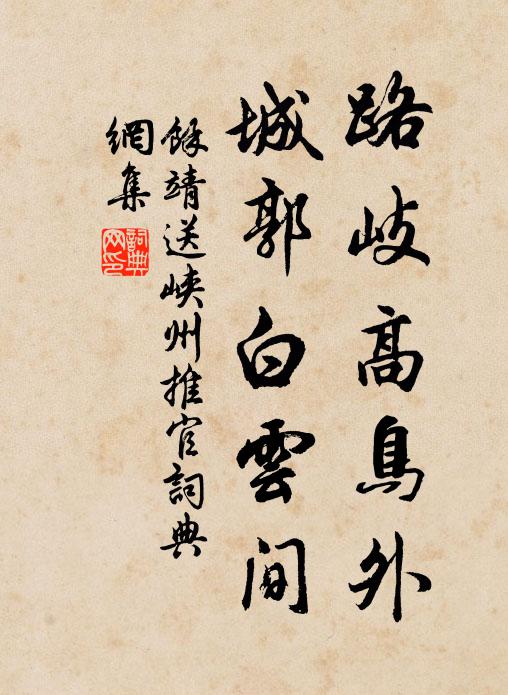 路岐高鳥外
城郭白雲間
餘靖送峽州推官詞典
網集
詞典
网印